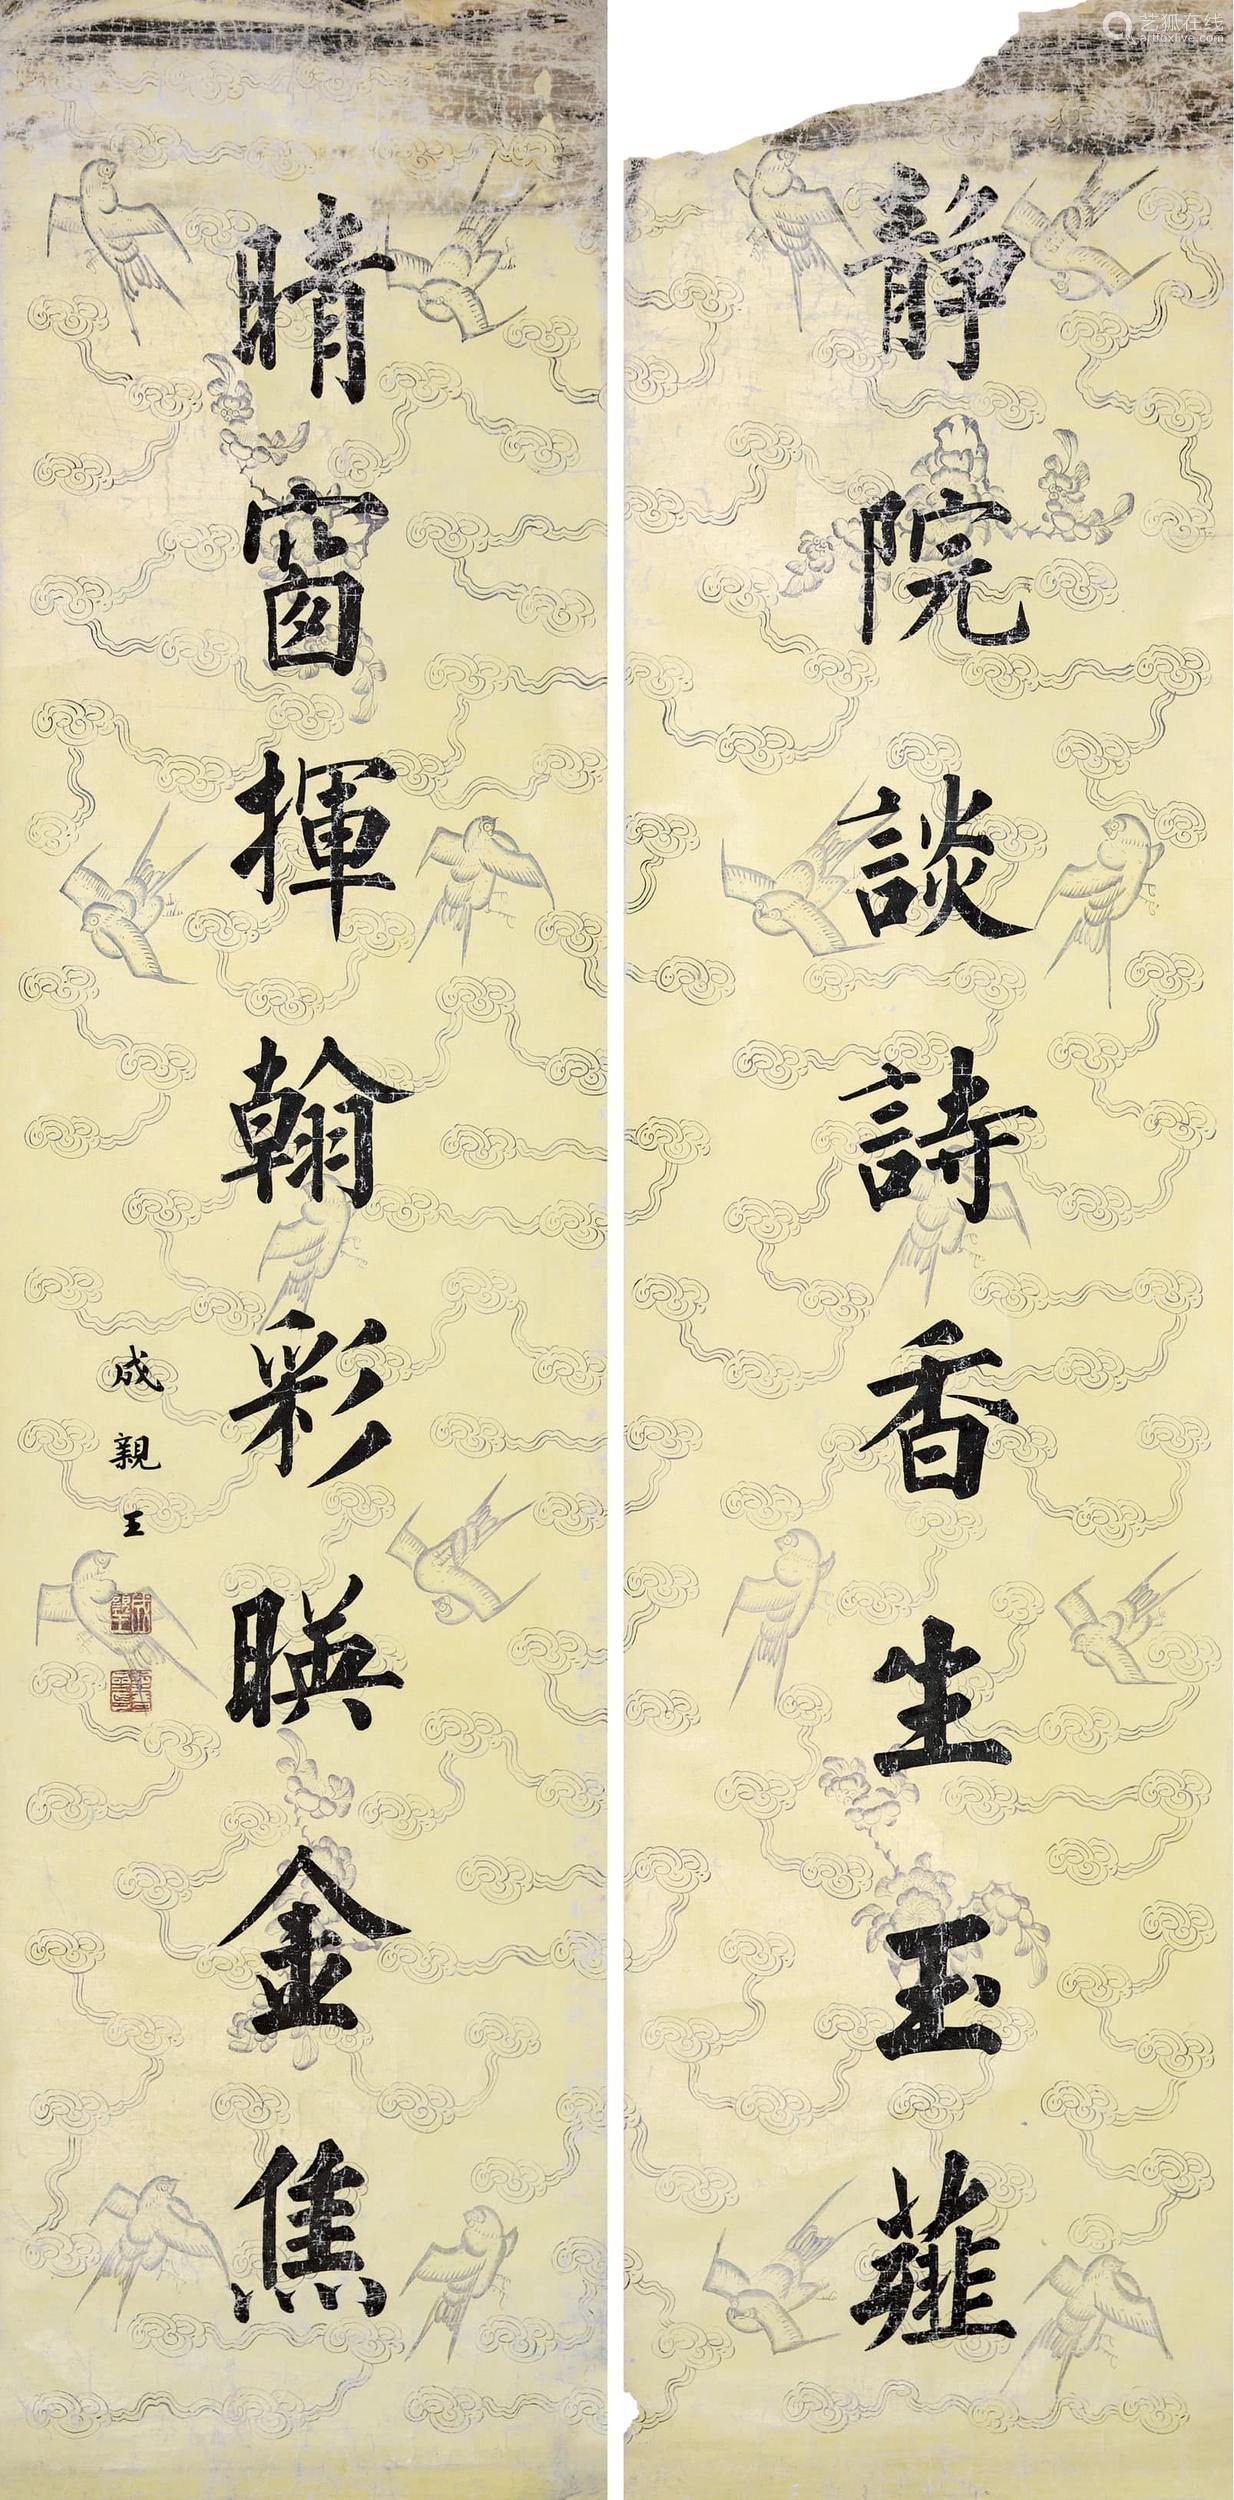 靜院談詩香生玉薤
晴窗揮翰彩暎金焦
成親王
艺狐在线
artfoxlive.com